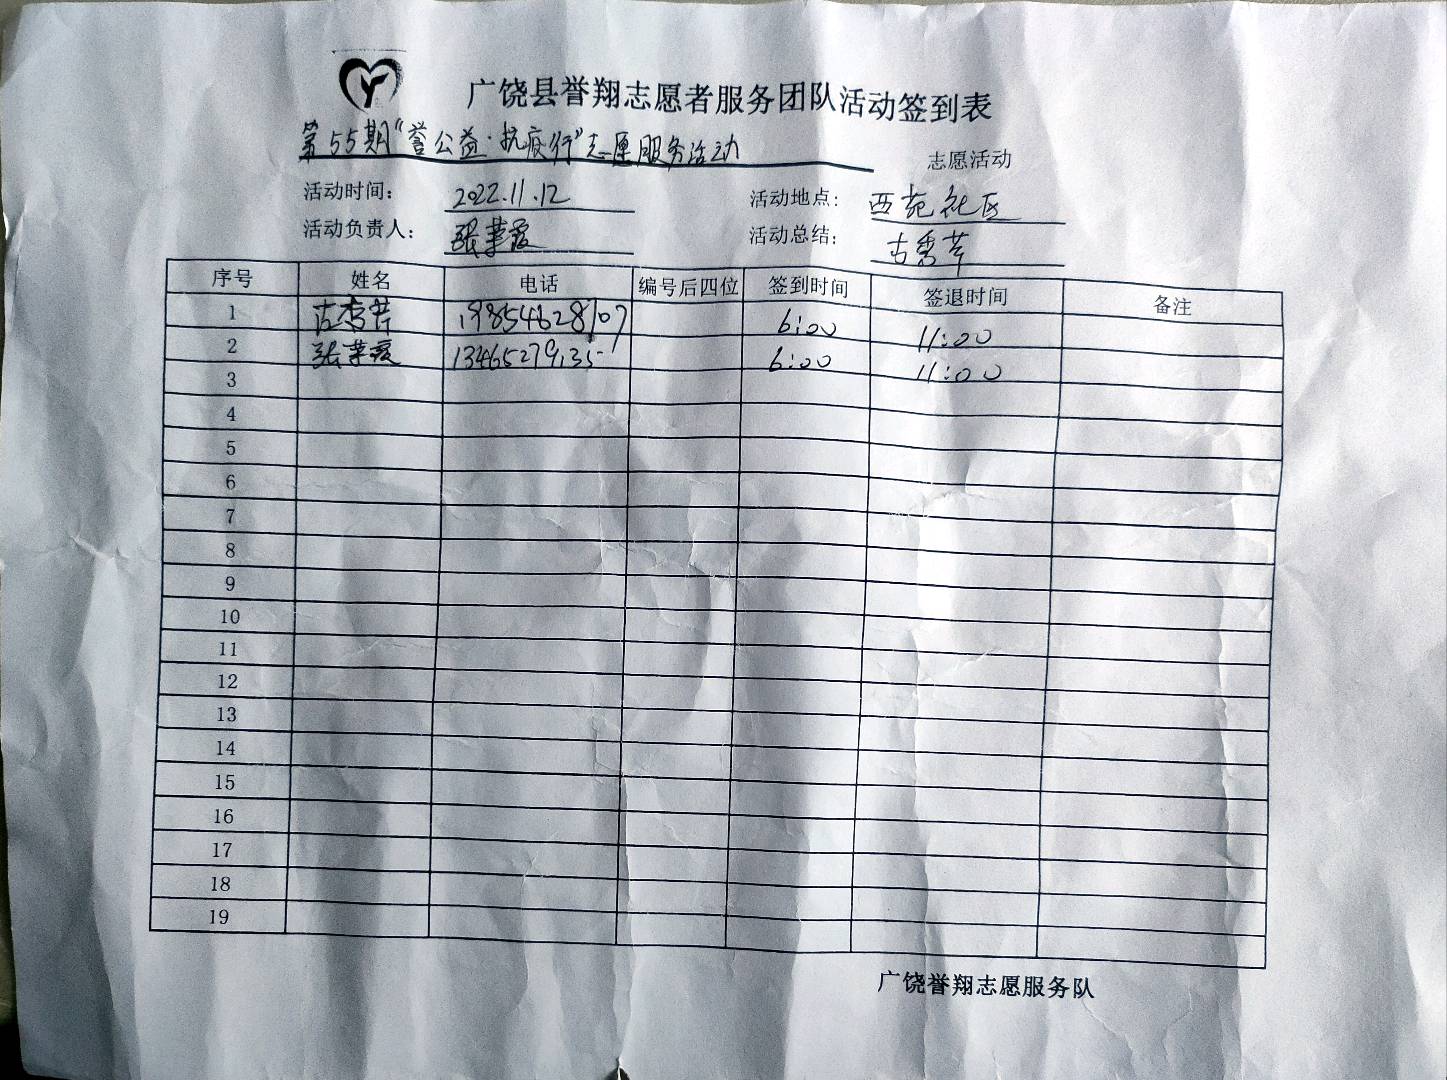 广饶县誉翔志愿者服务团队活动签到表
第55期“誉公益·抗疫行”志愿服务活动 志愿活动
活动时间： 2022.11.12 活动地点： 西苑社区
活动负责人： 活动总结：
序号 姓名 电话 编号后四位 签到时间 签退时间 备注
1 6:00 11:00
2 6:00 11:00
3
4
5
6
7
8
9
10
11
12
13
14
15
16
17
18
19
广饶誉翔志愿服务队